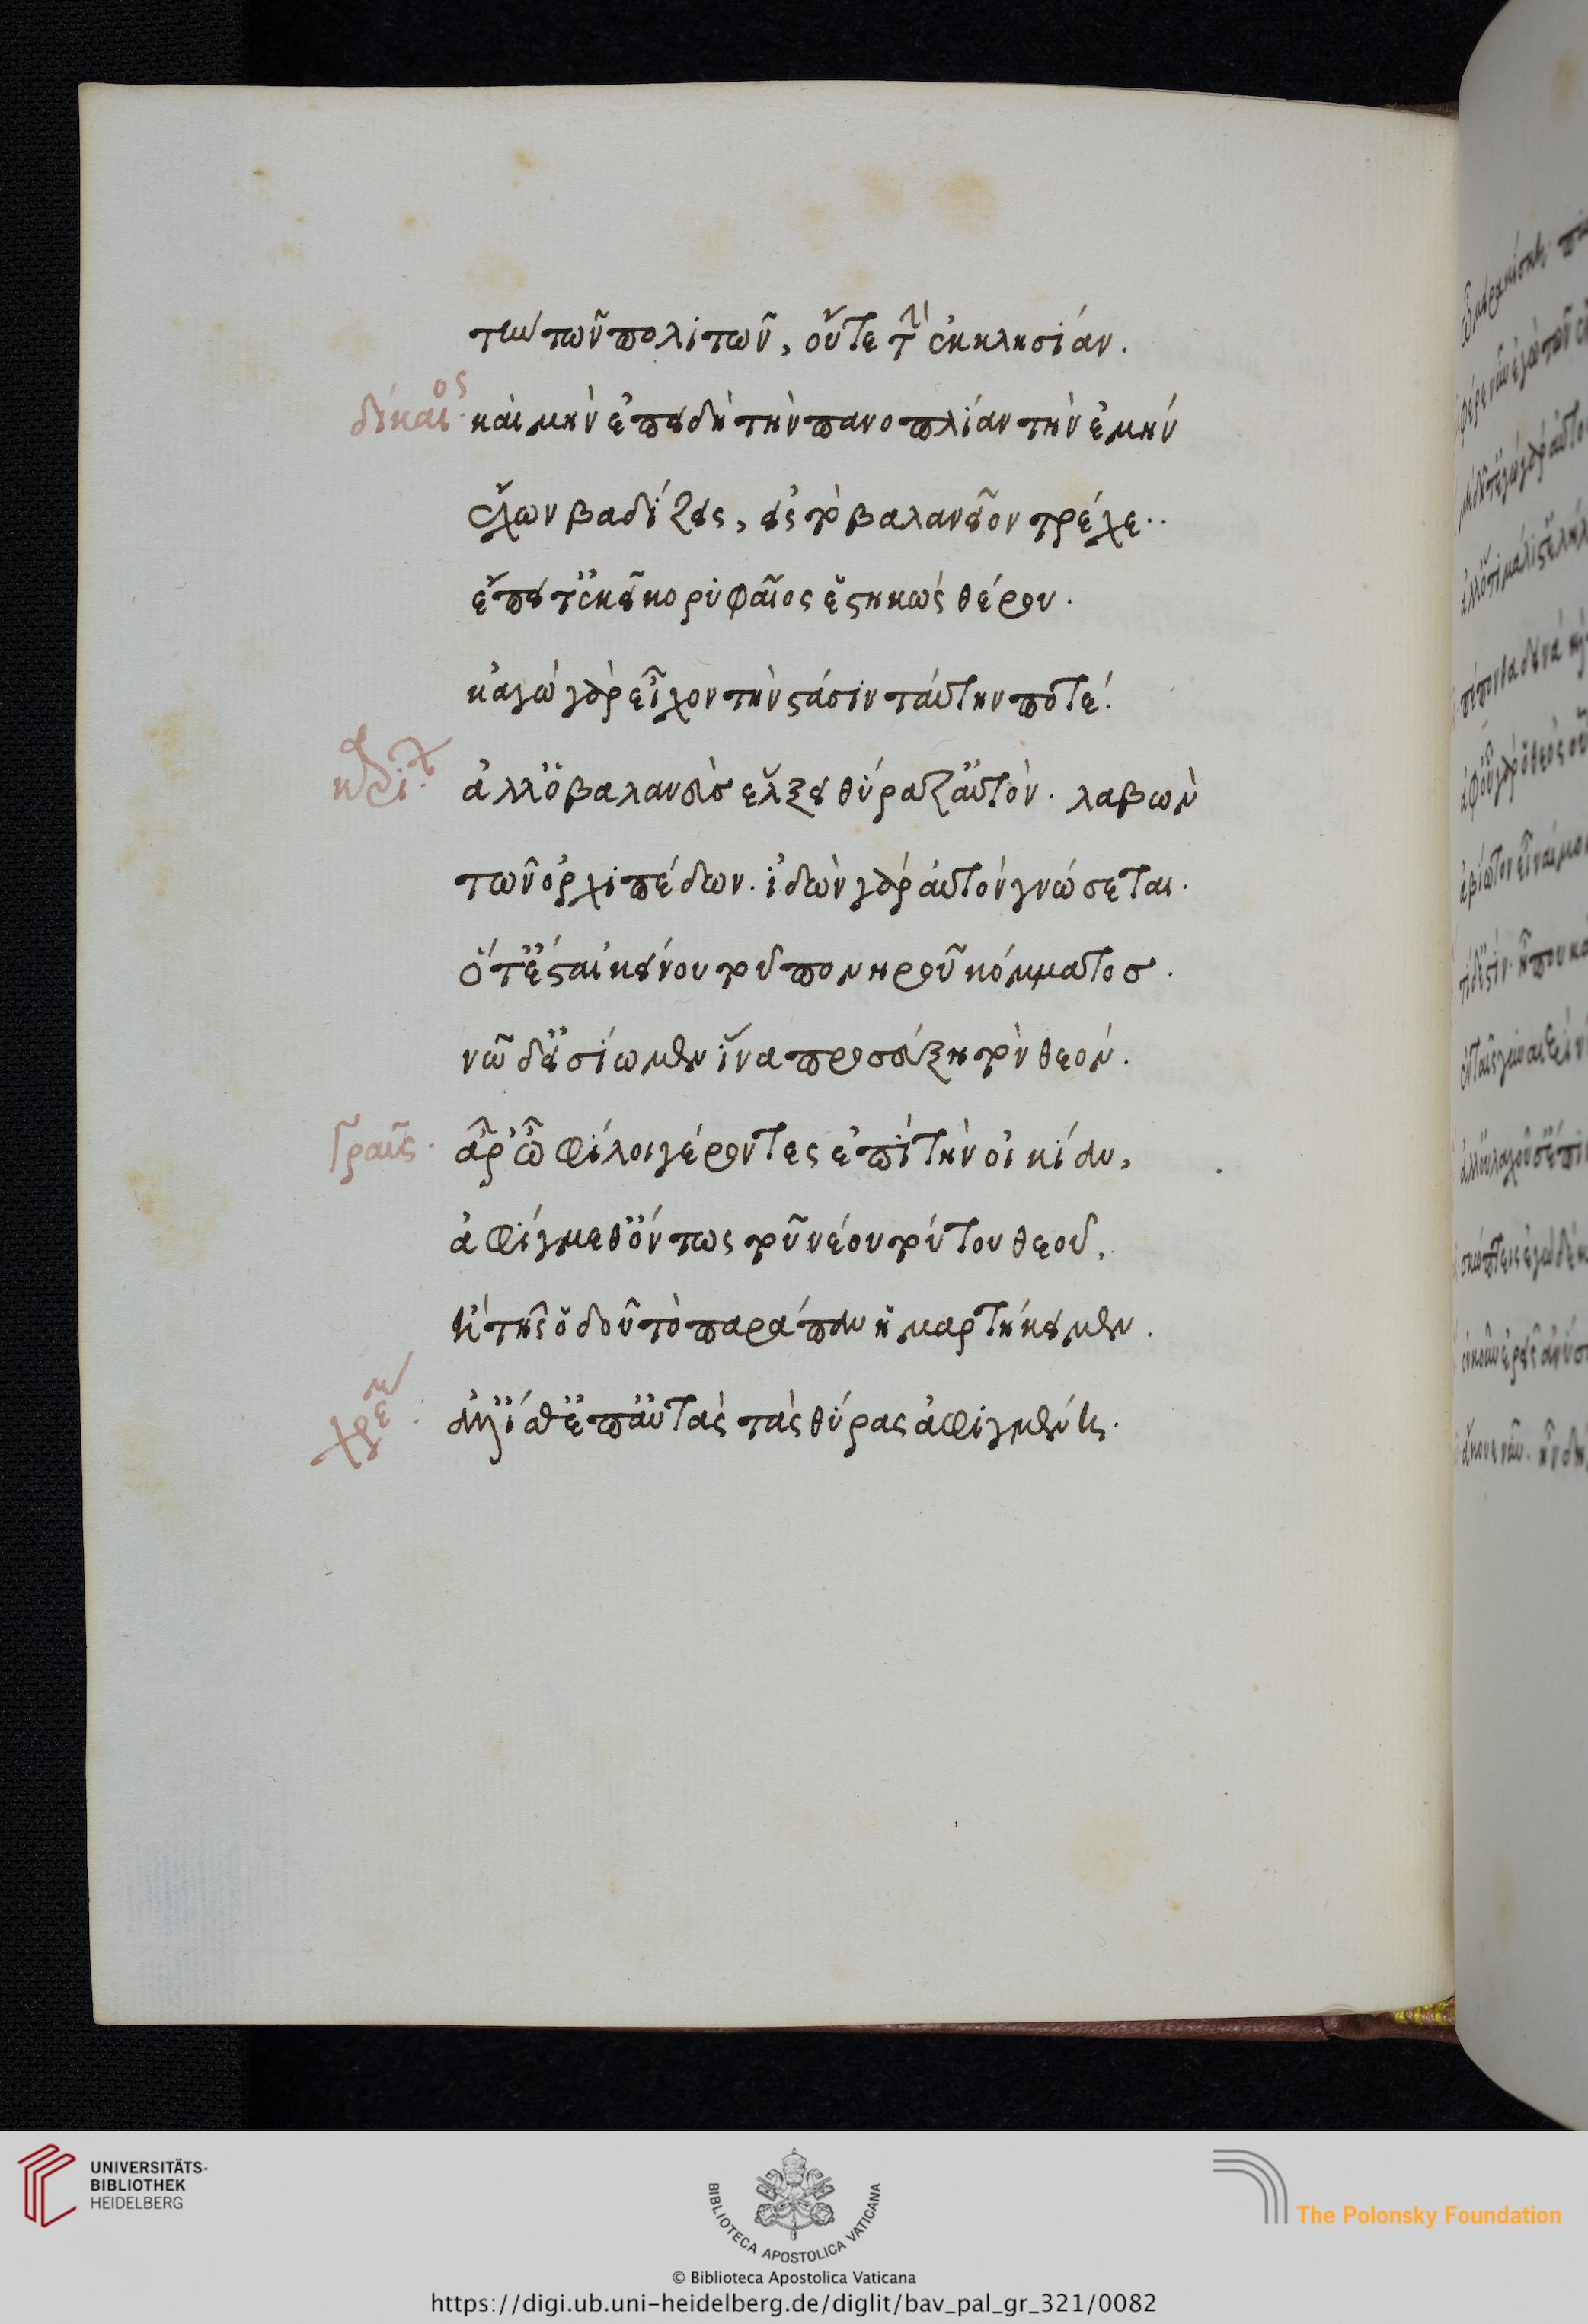 τὴν τῶν πολιτῶν, οὔτε τὴν ἐκκλησίαν.
δίκαιος· καὶ μὴν ἐπειδὴ τὴν πανοπλίαν τὴν ἐμὴν
ἔχων βαδίζεις, εἰς τὸ βαλανεῖον τρέχε··
ἔπειτ' ἐκεῖ κορυφαῖος ἑστηκὼς θέρου.
κἀγὼ γὰρ εἶχον τὴν στάσιν ταύτην ποτέ.
ἀλλ' ὁ βαλανεὺς ἕλξει θύραζ' αὐτόν. λαβὼν
τῶν ὀρχιπέδων. ἰδὼν γὰρ αὐτὸν γνώσεται.
ὅτ' ἔστ' ἐκείνου τοῦ πονηροῦ κόμματος.
νῶ δ' εἰσίωμεν ἵνα προσεύξη τὸν θεόν.
Γραῦς· ἆρ' ὦ φίλοι γέροντες ἐπὶ τὴν οἰκίαν,
ἀφίγμεθ' ὄντως τοῦ νέου τούτου θεοῦ,
ἢ τῆς ὁδοῦ τὸ παράπαν ἡμαρτήκειμεν.
χρεμ· ἀλλ' ἴσθ' ἐπ' αὐτὰς τὰς θύρας ἀφιγμένη.
UNIVERSITÄTS-
BIBLIOTHEK
HEIDELBERG
BIBLIOTECA APOSTOLICA VATICANA
The Polonsky Foundation
© Biblioteca Apostolica Vaticana
https://digi.ub.uni-heidelberg.de/diglit/bav_pal_gr_321/0082